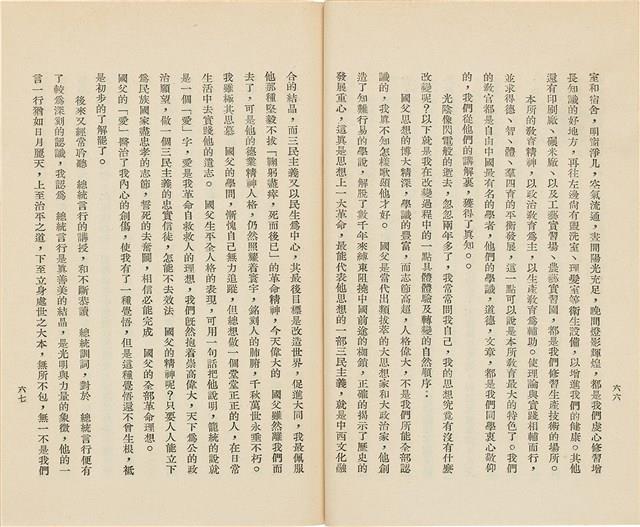 室和宿舍，明窗淨几，空氣流通，晝間陽光充足，晚間燈影輝煌，都是我們虔心修習增
長知識的好地方，再往左邊尚有盥洗室、理髮室等衛生設備，以增進我們的健康。其他
還有印刷廠、碾米廠、以及工藝實習場、農藝實習園，都是我們修習生產技術的場所。
本所的教育精神，以政治教育為主，以生產教育為輔助。使理論與實踐相輔而行，
並求得德、智、體、羣四育的平衡發展，這一點可以說是本所教育最大的特色了。我們
的教官都是自由中國最有名的學者，他們的學識，道德，文章，都是我們同學衷心敬仰
的，我們從他們的講解裏，獲得了眞知。
光陰像閃電般的逝去，忽忽兩年多了，我常常問我自己，我的思想究竟有沒有什麼
改變呢？以下就是我在改變過程中的一點具體體驗及轉變的自然順序：
國父思想的博大精深，學識的豐富，而志節高超，人格偉大，不是我們所能全部認
識的，我眞不知怎樣歌頌他才好。　國父是當代出類拔萃的大思想家和大政治家，他創
造了知難行易的學說，解脫了數千年來縛束阻撓中國前途的枷鎖，正確的揭示了歷史的
發展重心，這眞是思想上一大革命，最能代表他思想的一部三民主義，就是中西文化融
六六
合的結晶，而三民主義又以民生為中心，其最後目標是改造世界，促進大同，我最佩服
他那種堅毅不拔「鞠躬盡瘁，死而後已」的革命精神，今天偉大的　國父雖然離我們而
去了，可是他的後業精神人格，仍然照耀着寰宇，銘刻人的肺腑，千秋萬世永垂不朽。
我雖極其思慕　國父的學問，慚愧自己無力追蹤，但總想做一個堂堂正正的人，在日常
生活中去實踐他的遺志。　國父生平全人格的表現，可用一句話把他說明，籠統的說就
是一個「愛」字，愛是我革命自救救人的理想，我們旣然抱着崇高偉大，天下為公的政
治願望，做一個三民主義的忠實信徒，怎能不去效法　國父的精神呢？只要人人能立下
為民族國家盡忠孝的志節，誓死的去奮鬬，相信必能完成　國父的全部革命理想。
國父的「愛」醫治了我內心的創傷，使我有了一種覺悟，但是這種覺悟還不曾生根，祗
是初步的了解罷了。
後來又經常聆聽　總統言行的講授，和不斷恭讀　總統訓詞，對於　總統言行便有
了較為深刻的認識，我認為　總統言行是眞善美的結晶，是光明與力量的象徵，他的一
言一行猶如日月麗天，上至治平之道，下至立身處世之大本，無所不包，無一不是我們
六七